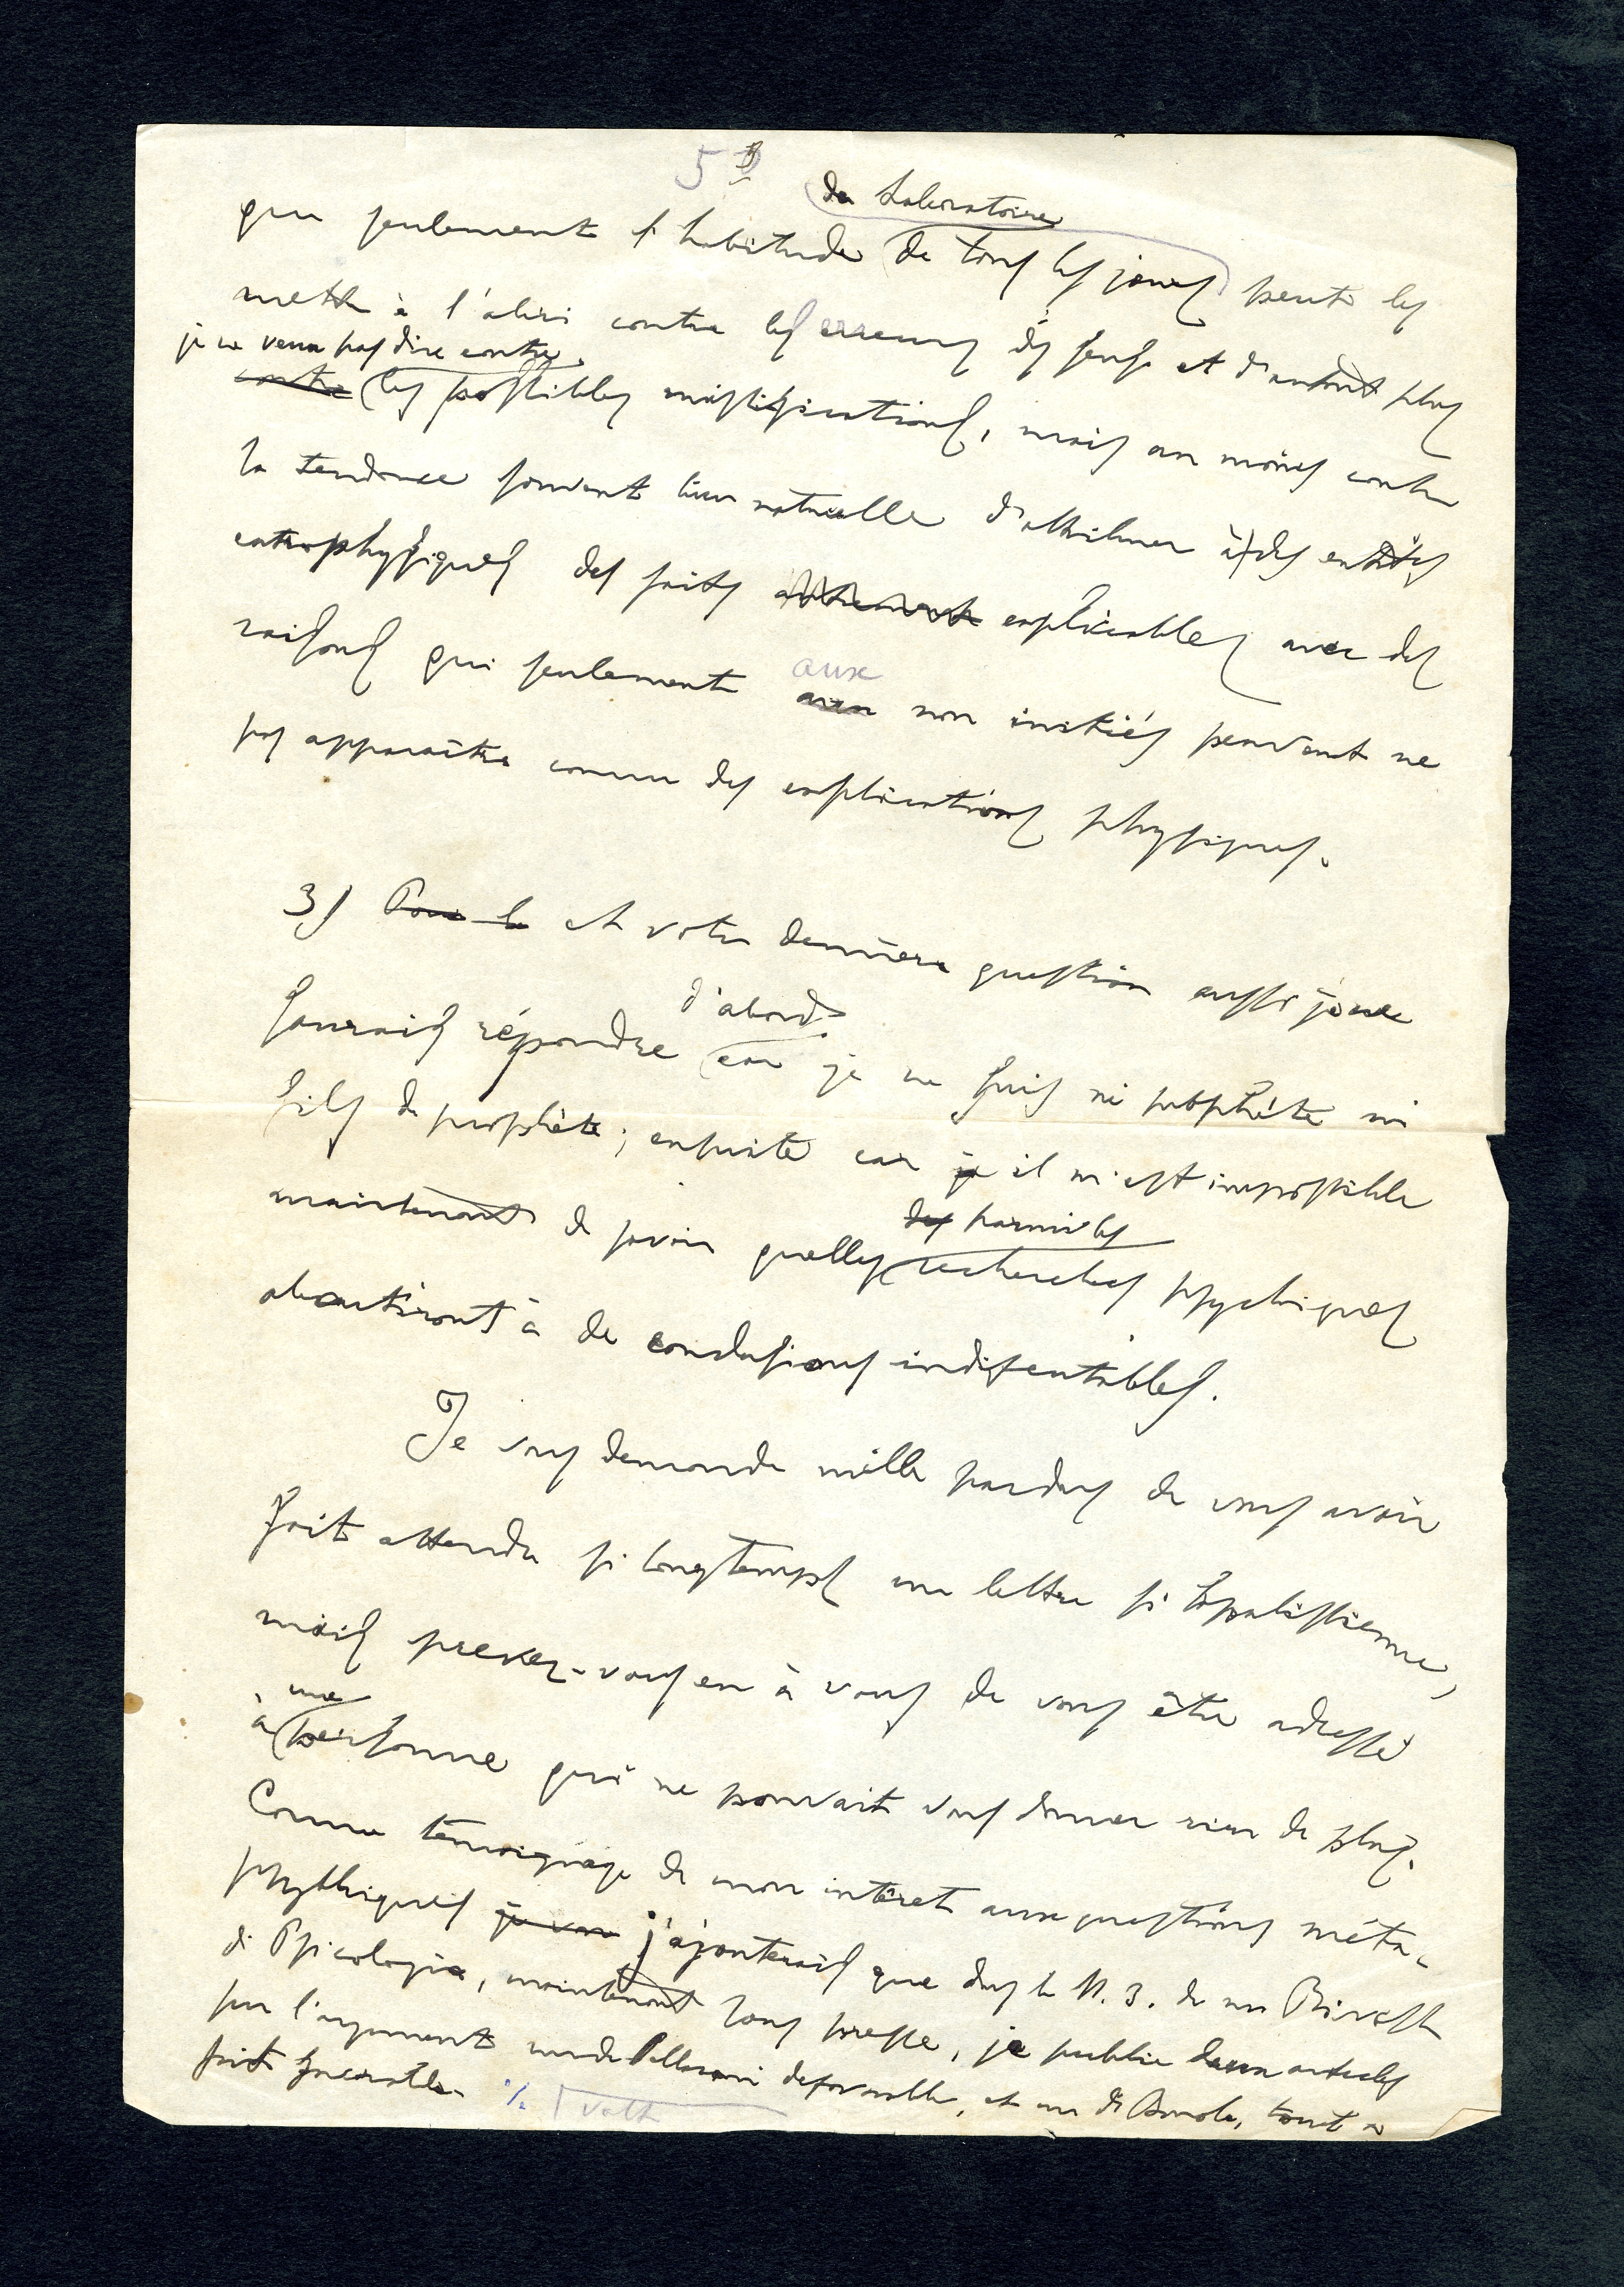 5
du Laboratoire
que seulement l'habitude de tous les jours peut les
mettre à l'abri contre les erreurs des sens et d'autant plus
je ne veux pas dire contre
contre les possibles mistifications, mais au moins contre
la tendance souvent bien naturelle d'attribuer à des entités
extraphysiques des faits explicables avec des
aux
raisons qui seulement non initiés peuvent ne
pas apparaître comme des explications physiques.
3) Pour la et votre dernière question aussi je ne
d'abord
saurais répondre car je ne suis ni prophète ni
fils de prophète; ensuite car je il m'est impossible
des parmi les
maintenant de savoir quelles recherches psychiques
aboutiront à de conclusions indiscutables.
Je vous demande mille pardons de vous avoir
fait attendre si longtemps une lettre si
mais prenez-vous en à vous de vous être adressé
une
à personne qui ne pouvait vous donner rien de plus.
Comme témoignage de mon intéret aux questions méta-
psychiques je j'ajouterais que dans le N. 3. de ma Rivista
di Psicologia, maintenant sous presse, je publie deux articles
sur l'argument un de défavorable, et un de tout à
fait favorable.
volt